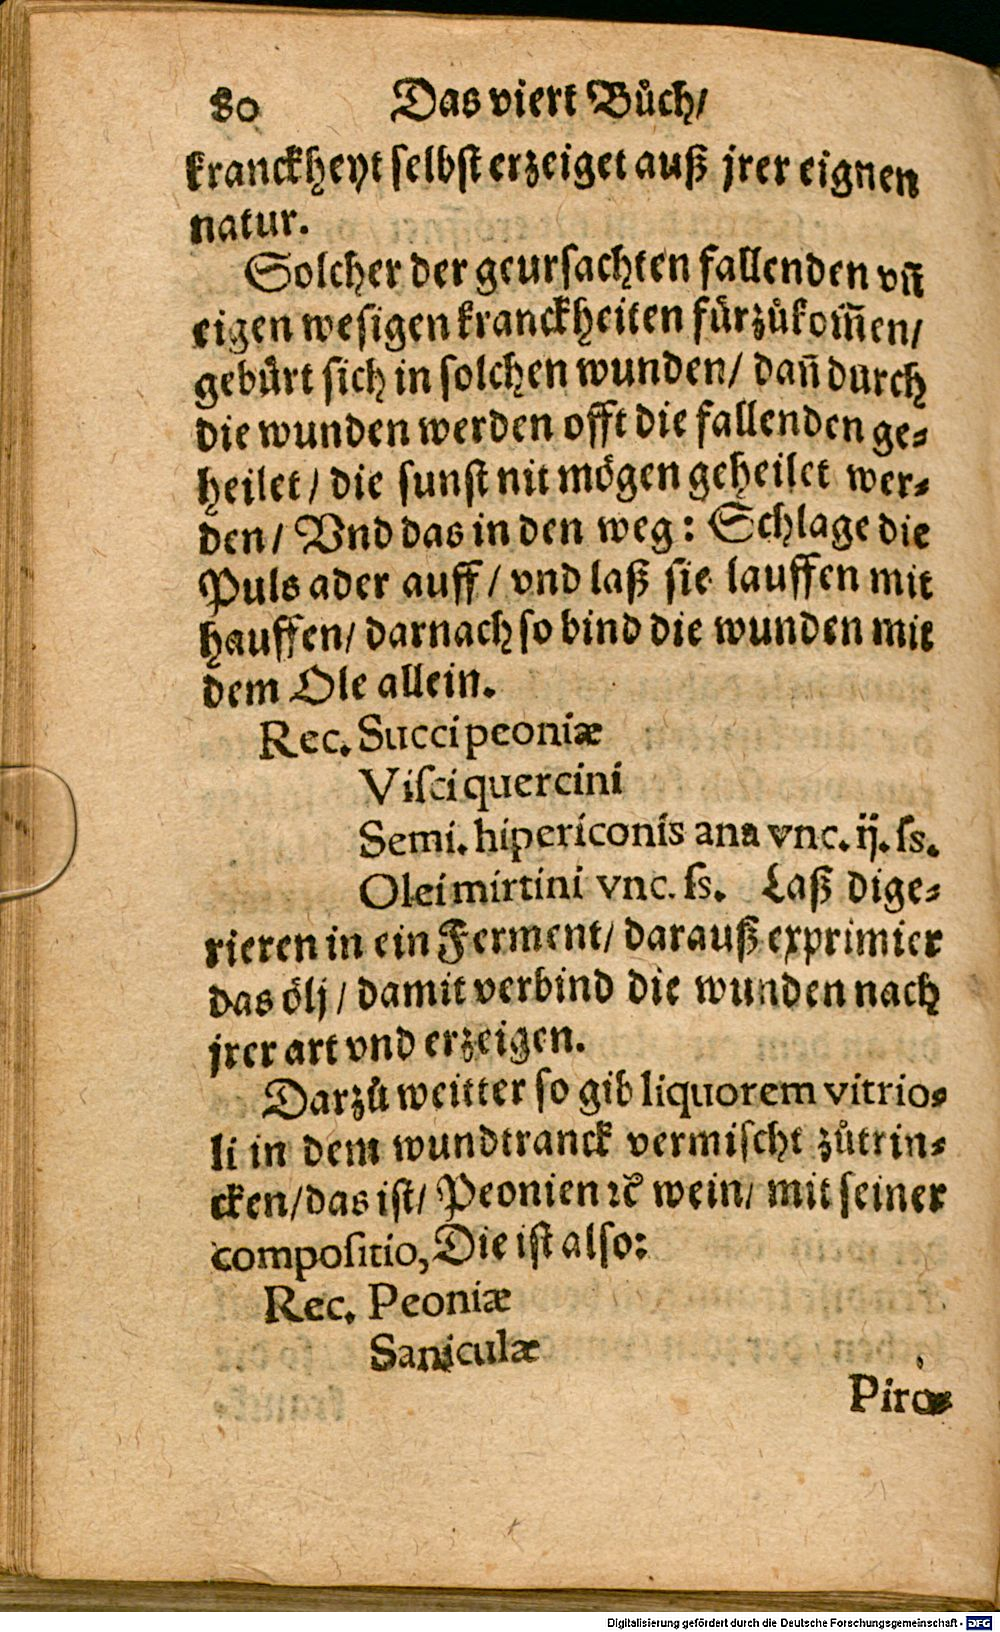 80 Das viert Bůch/
kranckheyt selbst erzeiget auß jrer eignen
natur.
Solcher der geursachten fallenden vñ
eigen wesigen kranckheiten fürzůkom̃en/
gebürt sich in solchen wunden/ dañ durch
die wunden werden offt die fallenden ge-
heilet/ die sunst nit mögen geheilet wer-
den/ Vnd das in den weg: Schlage die
Puls ader auff/ vnd laß sie lauffen mit
hauffen/ darnach so bind die wunden mit
dem Ole allein.
Rec. Succi peoniæ
Visci quercini
Semi. hipericonis ana vnc. ij. ſs.
Olei mirtini vnc. ſs. Laß dige-
rieren in ein Ferment/ darauß exprimier
das ölj/ damit verbind die wunden nach
jrer art vnd erzeigen.
Darzů weitter so gib liquorem vitrio-
li in dem wundtranck vermischt zůtrin-
cken/ das ist/ Peonien ꝛc wein/ mit seiner
compositio, Die ist also:
Rec. Peoniæ
Saniculæ
Piro-
Digitalisierung gefördert durch die Deutsche Forschungsgemeinschaft - DFG